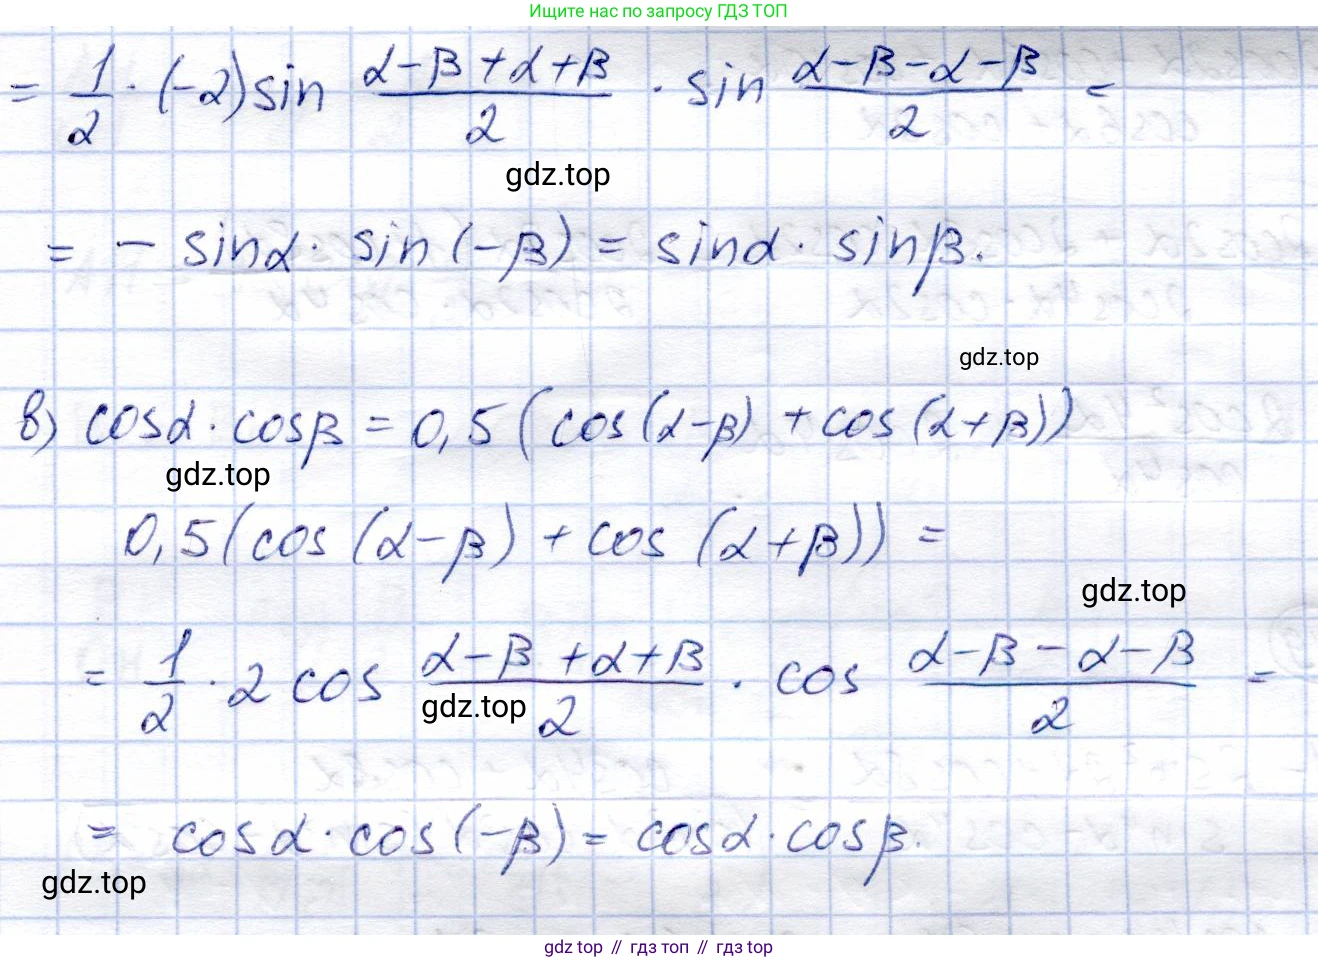 Ищите нас по запросу ГДЗ ТОП
= 1/2 · (-2) sin (α-β+α+β)/2 · sin (α-β-α-β)/2 =
gdz.top
= - sinα · sin(-β) = sinα · sinβ.
gdz.top
в) cosα · cosβ = 0,5(cos(α-β) + cos(α+β))
gdz.top
0,5(cos(α-β) + cos(α+β)) =
gdz.top
= 1/2 · 2 cos (α-β+α+β)/2 · cos (α-β-α-β)/2 =
gdz.top
= cosα · cos(-β) = cosα · cosβ.
gdz.top
gdz top // гдз топ // gdz top